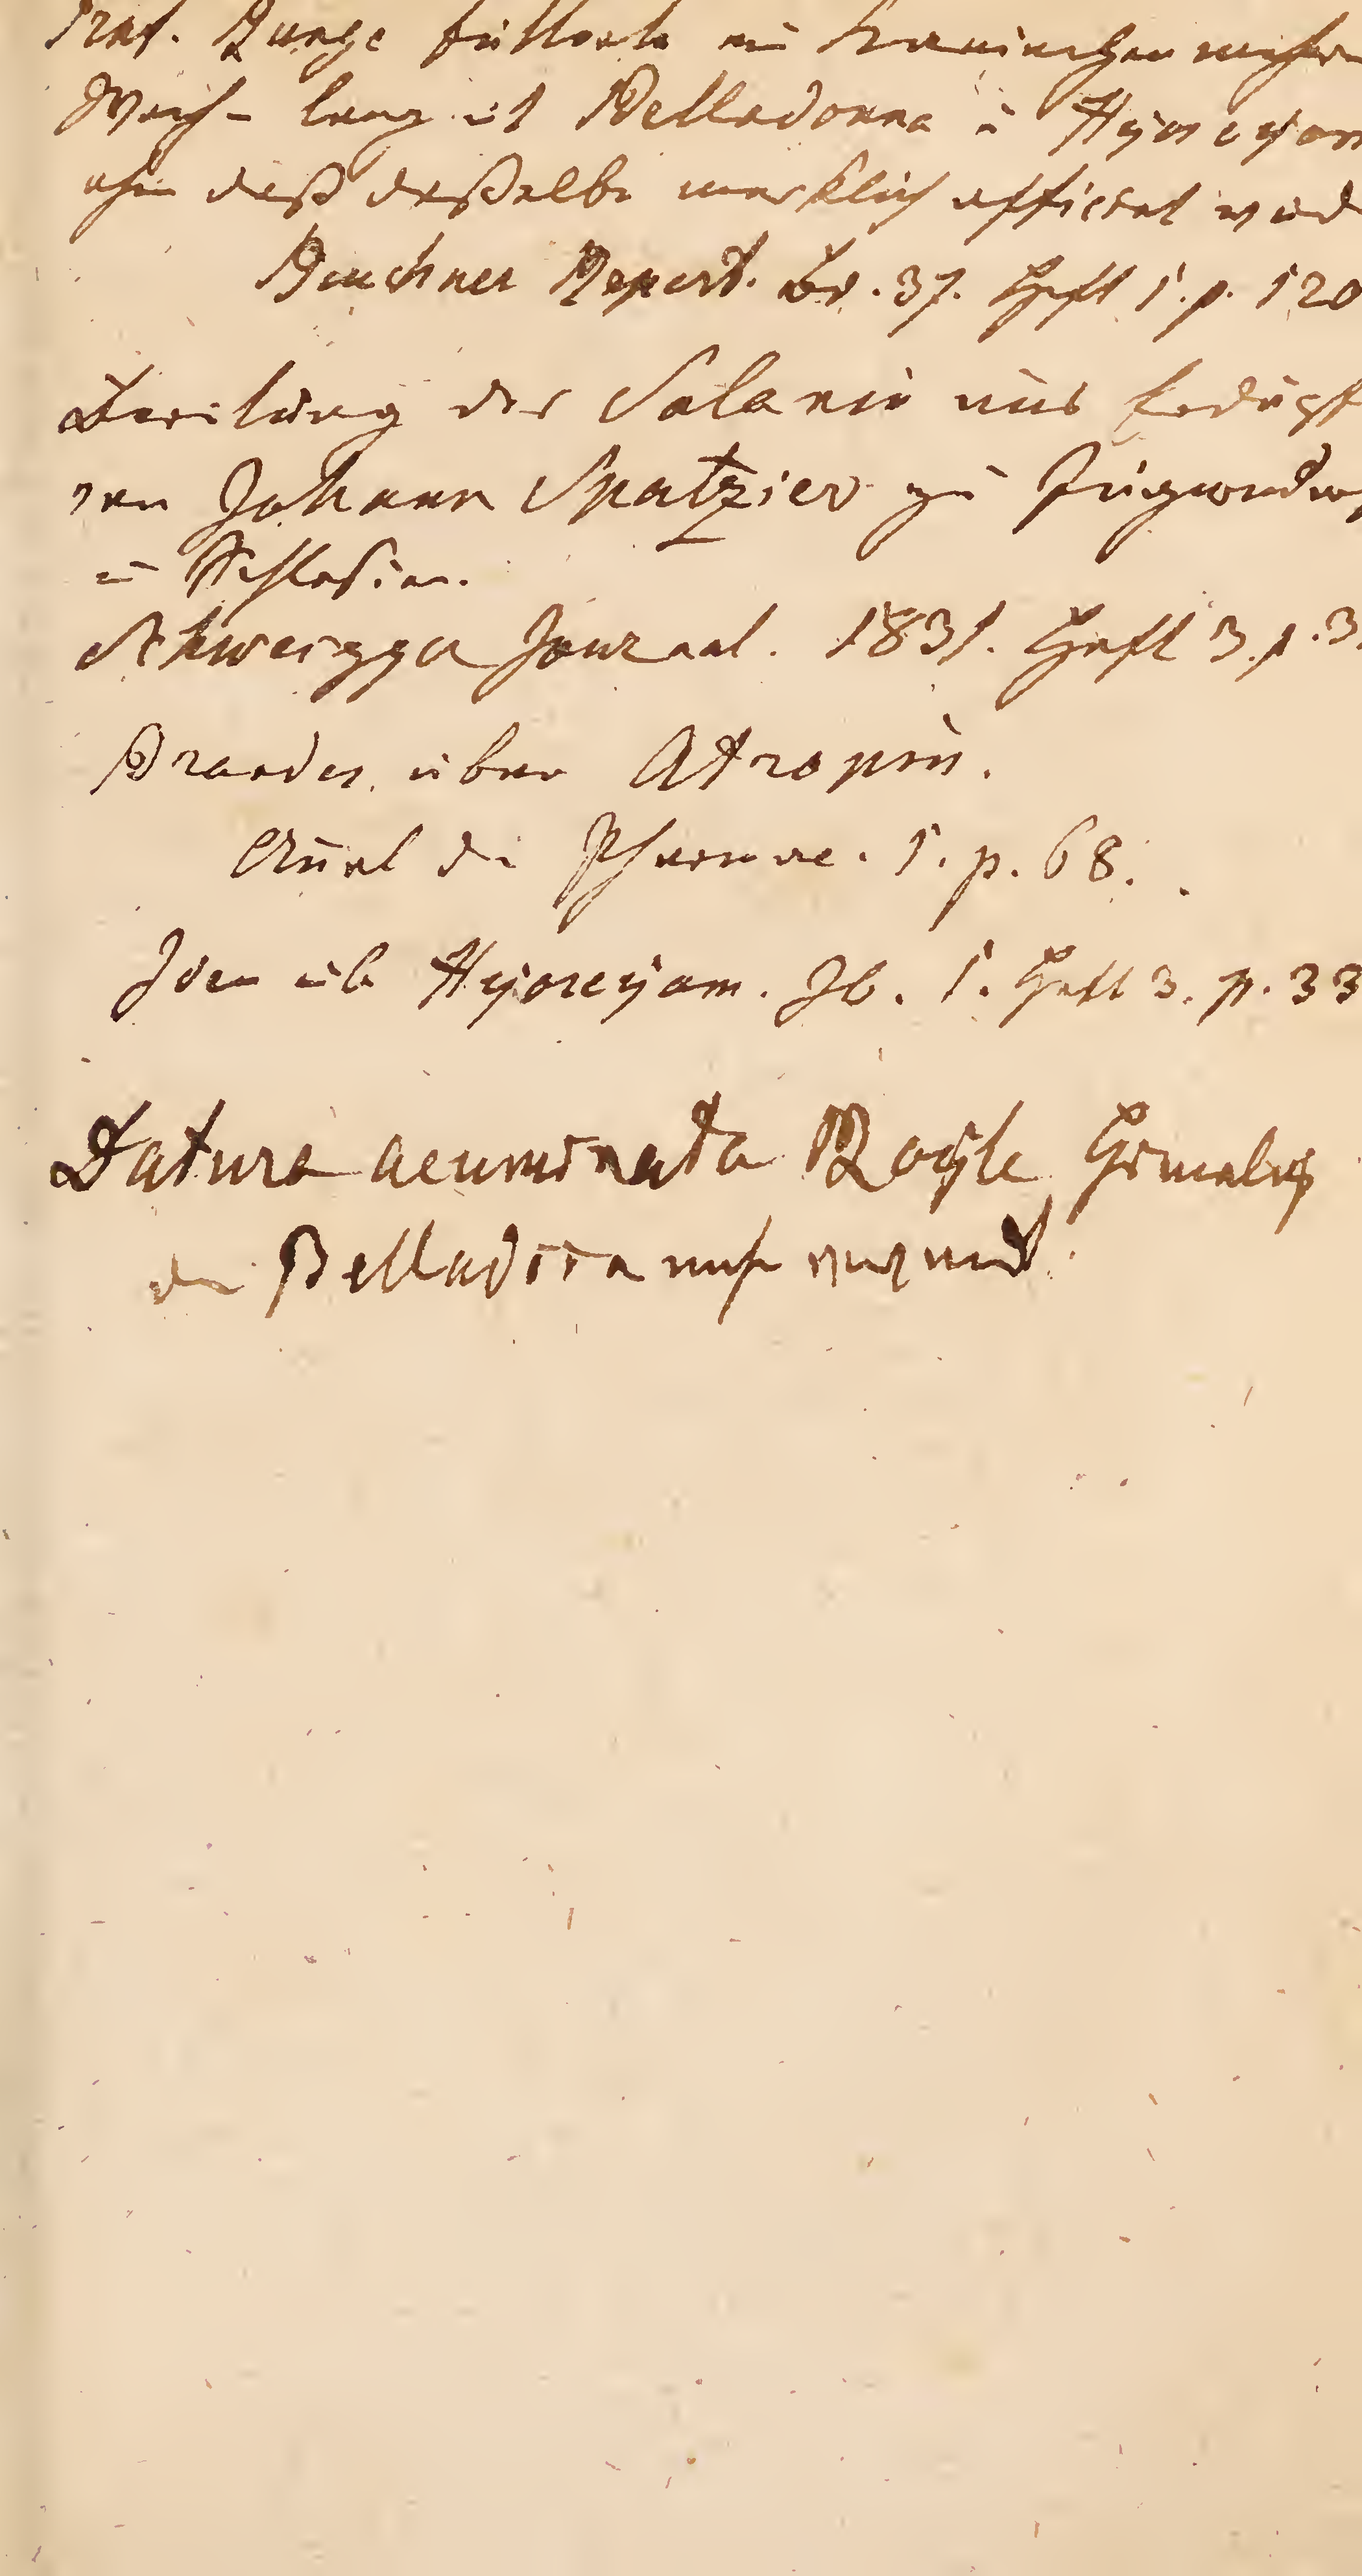 Prof. Runge fütterte ein Kaninchen mehre
Woch- lang mit Belladonna u Hyoscyam
ohne daß daßelbe merklich afficiert wurd
Buchner Repert. Bd. 37. Heft 1. p. 120
Darstellung des Solanin aus
von Johann Spatzier zu Jägerndorf
in Schlesien.
Schweigger Journal. 1831. Heft 3. p. 3
Brandes über Atropin.
Annal der Pharmac. 1. p. 68.
Idem üb Hyoscyam. Ib. 1. Heft 3. p. 33
Datura acuminata Royle Himalaj
der Belladonna nah verwandt.